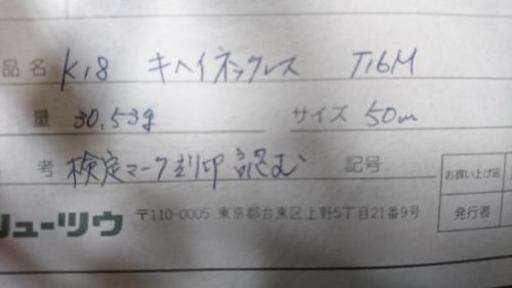 品名 K18 キヘイネックレス T16M
量 30.53g サイズ 50cm
考 検定マーク刻印認む 記号 お買い上げ店
リューツウ 〒110-0005 東京都台東区上野5丁目21番9号 発行者